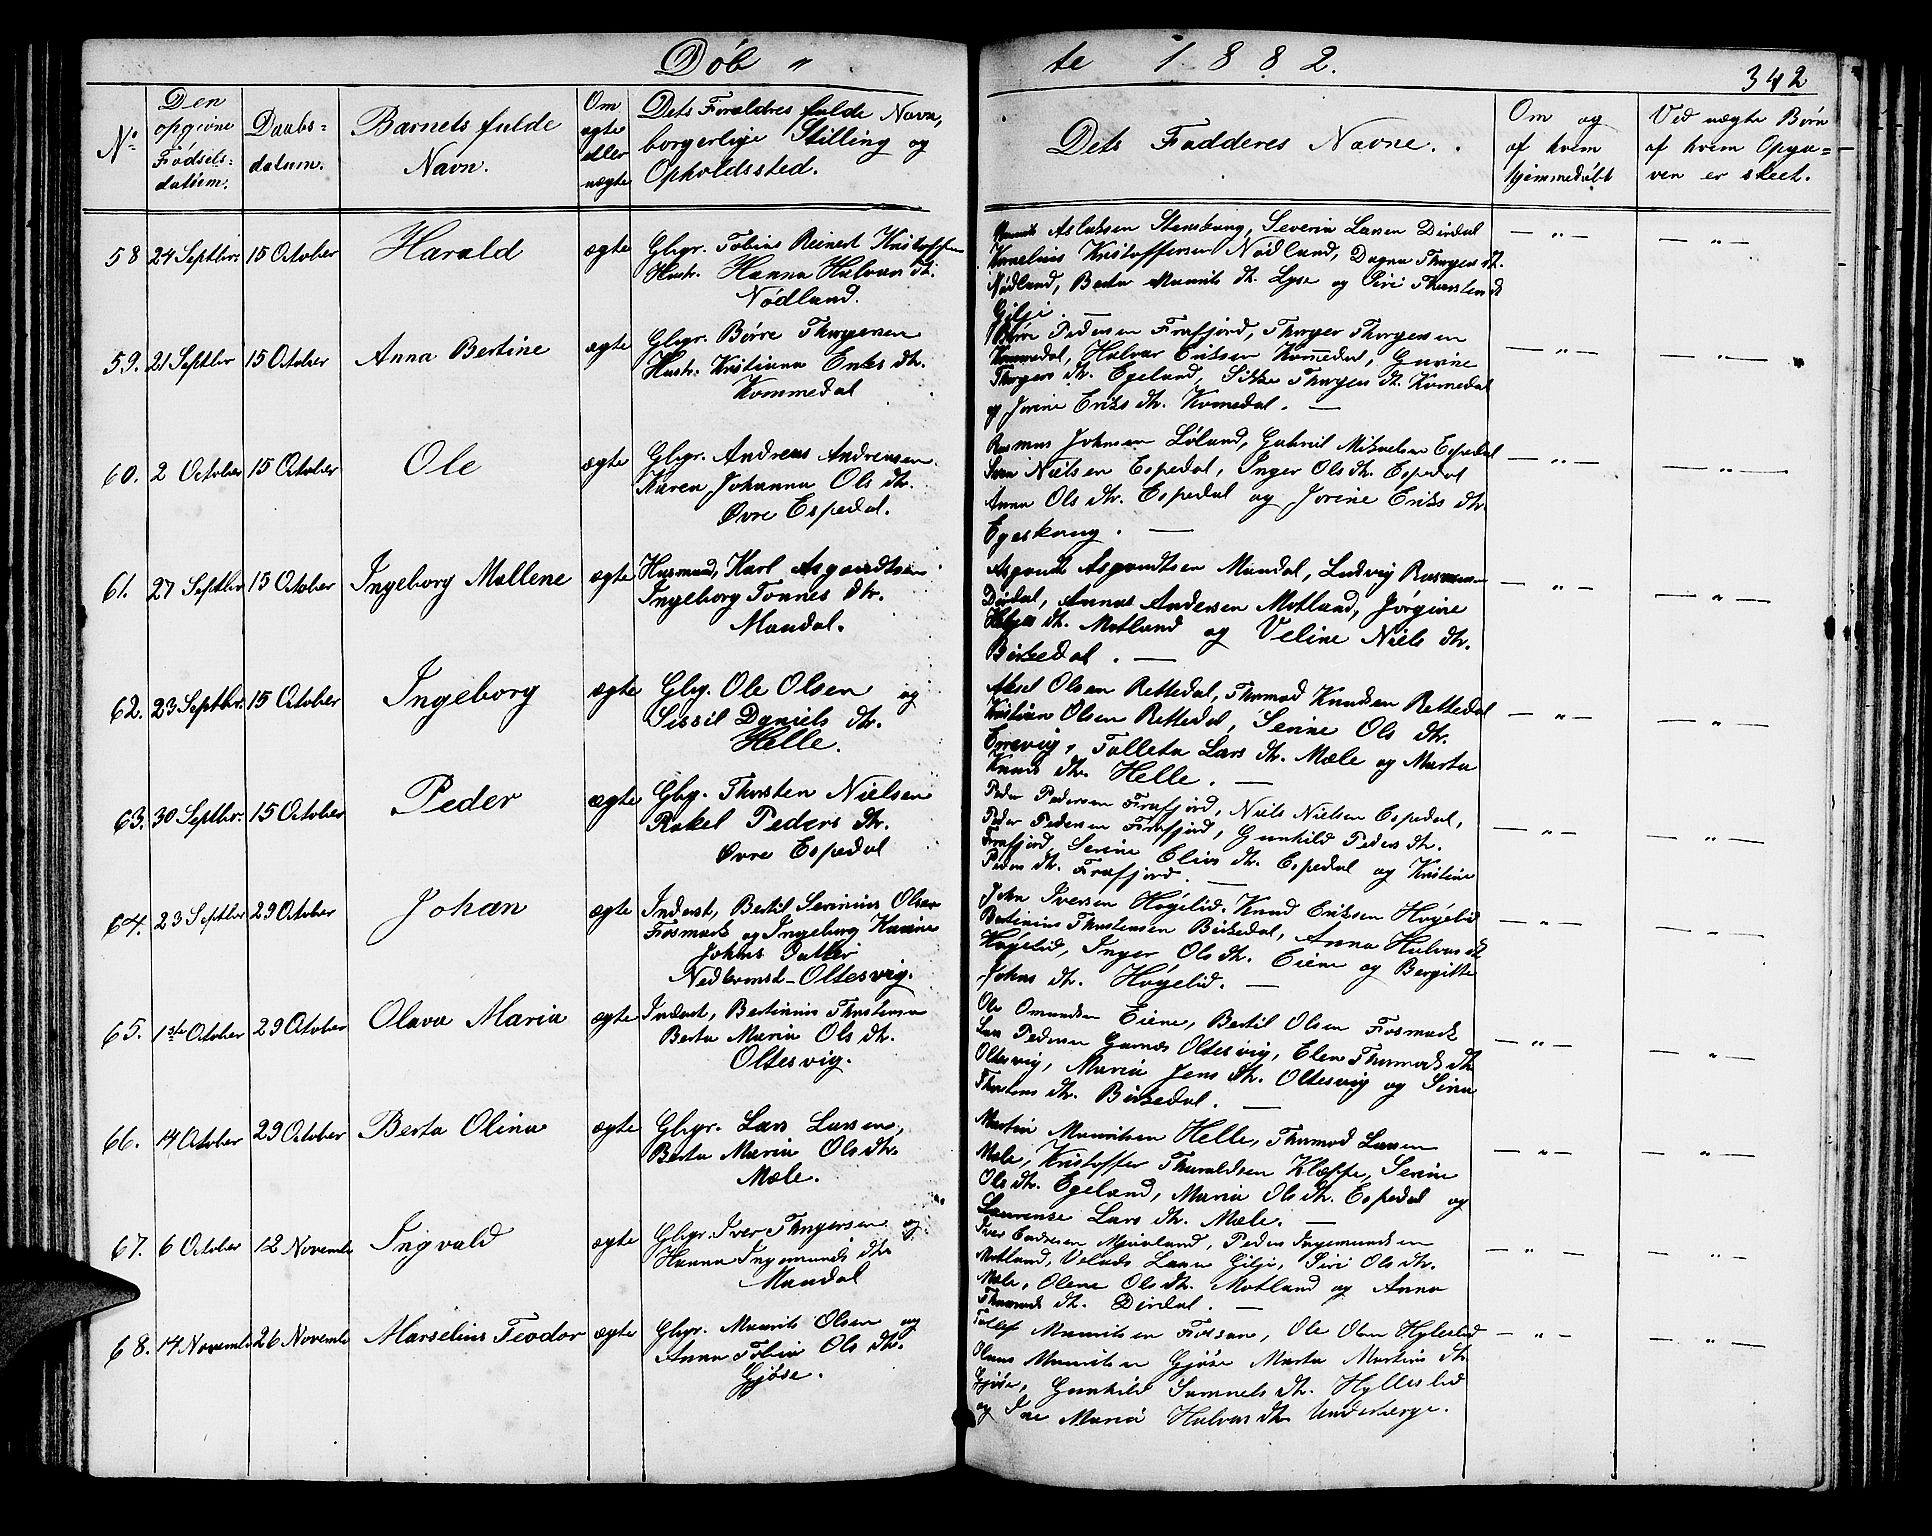 Døb " te 1882.
342
No.
Den opgivne Fødsels= datum.
Daabs= datum.
Barnets fulde Navn.
Om ægte eller uægte
Dets Forældres fulde Navn, borgerlige Stilling og Opholdssted.
Dets Fadderes Navne.
Om og af hvem hjemmedøbt
Ved uægte Børn af hvem Opga= ven er skeet.
58 24 Septbr. 15 October Harald ægte Gbgr. Tobias Reinert Kristoffersen
Hustr. Hanna Halvors dtr.
Nødland.
Aslaksen Stensbang, Severin Larsen Dirdal
Kornelius Kristoffersen Nødland, Dagna Thorgers dtr.
Nødland, Berta Maurits dtr. Lyse og Siri Thorstens dtr.
Gilje. —
— " —
— " —
59. 21 Septbr 15 October Anna Bertine ægte Gbgr. Børre Thorgersen
Hustr. Kristiana Eriks dtr.
Kommedal
Børre Pedersen Frafjord, Thorger Thorgersen
Kommedal, Halvor Eriksen Kommedal, Gurine
Thorgers dtr. Egeland, Sikke Thorgers dtr. Komedal
og Jorine Eriks dtr. Komedal. —
— " —
— " —
60. 2 October 15 October Ole ægte Gbgr. Andreas Andreasen
Karen Johanna Ols dtr.
Øvre Espedal.
Rasmus Johnsen Løland, Gabriel Mikaelsen Espedal
Sven Nielsen Espedal, Inger Ols dtr. Espedal
Anna Ols dtr. Espedal og Jorine Eriks dtr.
Egeskaug. —
— " —
— " —
61. 27 Septbr 15 October Ingeborg Mallene ægte Husmand, Karl Asgautsen
Ingeborg Tønnes dtr.
Mandal.
Asgaut Asgautsen Mandal, Ludvig Rasmussen
Dirdal, Annas Andersen Motland, Jørgine
Helges dtr. Motland og Veline Niels dtr.
Birkedal. —
— " —
— " —
62. 23 Septbr. 15 October Ingeborg ægte Gbg. Ole Olsen og
Sissil Daniels dtr.
Helle.
Aksel Olsen Rettedal, Thormod Knudsen Rettedal
Kristian Olsen Rettedal, Serine Ols dtr.
Errevig, Talleta Lars dtr. Mæle og Marta
Knuds dtr. Helle. —
— " —
— " —
63. 30 Septbr. 15 October Peder ægte Gbg. Thorsten Nielsen
Rakel Peders dtr.
Øvre Espedal
Peder Pedersen Frafjord, Niels Nielsen Espedal,
Peder Pedersen Frafjord, Gunhild Peders dtr.
Frafjord, Serine Elias dtr. Espedal og Kristine
Peders dtr. Frafjord. —
— " —
— " —
64. 23 Septbr 29 October Johan ægte Inderst, Bertil Serinius Olsen
Fosmark og Ingeborg Karine
Johns Datter
Nedlemsd-Oltesvig.
John Iversen Høgelid, Knud Eriksen Høgelid
Bertinius Thorstensen Birkedal, Anna Halvors dtr
Høgelid, Inger Ols dtr. Eiene og Bergitte
Johns dtr. Høgelid. —
— " —
— " —
65. 1ste October 29 October Olava Maria ægte Inderst, Bertinius Thorstensen
Berta Maria Ols dtr.
Oltesvig.
Ole Omundsen Eiene, Bertil Olsen Fosmark
Lars Pedersen Gamas Oltesvig, Elen Thormods dtr
Oltesvig, Maria Jens dtr. Oltesvig og Sina
Thorstens dtr. Birkedal. —
— " —
— " —
66. 14 October 29 October Berta Olina ægte Gbgr. Lars Larsen,
Berta Maria Ols dtr.
Mæle.
Martin Mauritsen Helle, Thormod Larsen
Mæle, Kristoffer Thoraldsen Klæppe, Serine
Ols dtr. Egeland, Maria Ols dtr. Espedal og
Laurense Lars dtr. Mæle. —
— " —
— " —
67. 6 October 12 Novembr Ingvald ægte Gbgr. Iver Thorgersen og
Hanna Ingemunds dtr.
Mandal
Iver Endresen Mjaaland, Peder Ingemundsen
Motland, Velads Larsen Gilje, Siri Ols dtr.
Mæle, Olene Ols dtr. Motland og Anna
Thormods dtr. Dirdal. —
— " —
— " —
68. 14 Novembr 26 Novembr Marselius Teodor ægte Gbgr. Maurits Olsen og
Anna Tobia Ols dtr.
Gjøse.
Tollef Mauritsen Fossan, Ole Olsen Hyleslid
Olaus Mauritsen Gjøse Marta Martins dtr.
Gjøse, Gunhild Samuels dtr. Hylleslid
og Ine Maria Halvors dtr. Underberge.
— " —
— " —